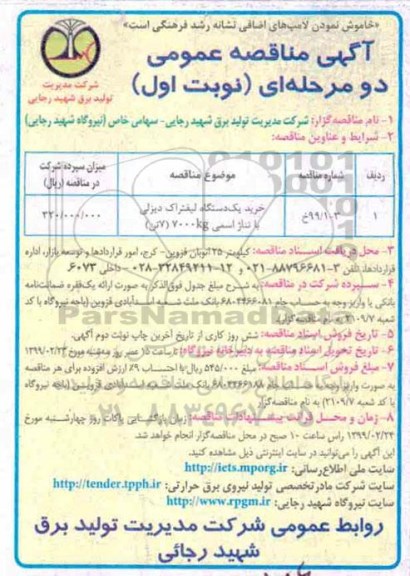 «خاموش نمودن لامپ‌های اضافی نشانه رشد فرهنگی است»
آگهی مناقصه عمومی
دو مرحله‌ای (نوبت اول)
شرکت مدیریت
تولید برق شهید رجایی
۱- نام مناقصه‌گزار: شرکت مدیریت تولید برق شهید رجایی- سهامی خاص (نیروگاه شهید رجایی)
۲- شرایط و عناوین مناقصه:
ردیف شماره مناقصه موضوع مناقصه میزان سپرده شرکت در مناقصه (ریال)
۱ ۹۹/۱-۳خ خرید یک‌دستگاه لیفتراک دیزلی با تناژ اسمی ۷۰۰۰kg (۷تن) ۳۲۰/۰۰۰/۰۰۰
۳- محل دریافت اسناد مناقصه: کیلومتر ۲۵ اتوبان قزوین- کرج، امور قراردادها و توسعه بازار، اداره
قراردادها، تلفن ۳-۸۸۷۹۶۶۸۱-۰۲۱ و ۱۲-۳۲۸۴۹۴۱۱-۰۲۸ داخلی ۶۰۷۳
۴- سپرده شرکت در مناقصه: به شرح مبلغ جدول فوق‌الذکر به صورت ارائه یک‌فقره ضمانت‌نامه
بانکی یا واریز وجه به حساب جام بانک ملت شعبه اسدآبادی قزوین (باجه نیروگاه با کد
شعبه ۲۱۰۹/۷) به نام مناقصه‌گزار.
۵- تاریخ فروش اسناد مناقصه: شش روز کاری از تاریخ آخرین چاپ نوبت دوم آگهی.
۶- تاریخ تحویل اسناد مناقصه به دبیرخانه نیروگاه: تا ساعت ۱۵ عصر روز مورخ ۱۳۹۹/۰۲/۲۳
۷- مبلغ فروش اسناد مناقصه: مبلغ ۵۴۵/۰۰۰ ریال با احتساب ۹٪ ارزش افزوده برای هر مناقصه
به صورت واریز بانک ملت شعبه اسدآبادی قزوین (باجه نیروگاه
با کد شعبه ۲۱۰۹/۷) به نام مناقصه‌گزار
۸- زمان و محل قرائت پیشنهاد مناقصه: زمان بازگشایی پاکات روز چهارشنبه مورخ
۱۳۹۹/۰۲/۲۴ راس ساعت ۱۰ صبح در محل مناقصه‌گزار انجام خواهد شد.
این آگهی را می‌توانید در سایت اینترنتی ذیل مشاهده کنید.
سایت ملی اطلاع‌رسانی: http://iets.mporg.ir
سایت شرکت مادرتخصصی تولید نیروی برق حرارتی: http://tender.tpph.ir
سایت نیروگاه شهید رجایی: http://www.rpgm.ir
روابط عمومی شرکت مدیریت تولید برق
شهید رجائی
ParsNamadData
۰۲۱-۸۸۳۴۹۶۷۰-۵